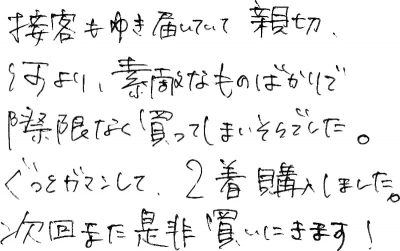 接客もゆき届いていて親切、
何より、素敵なものばかりで
際限なく買ってしまいそうでした。
ぐっとガマンして、2着購入しました。
次回また是非買いにきます!